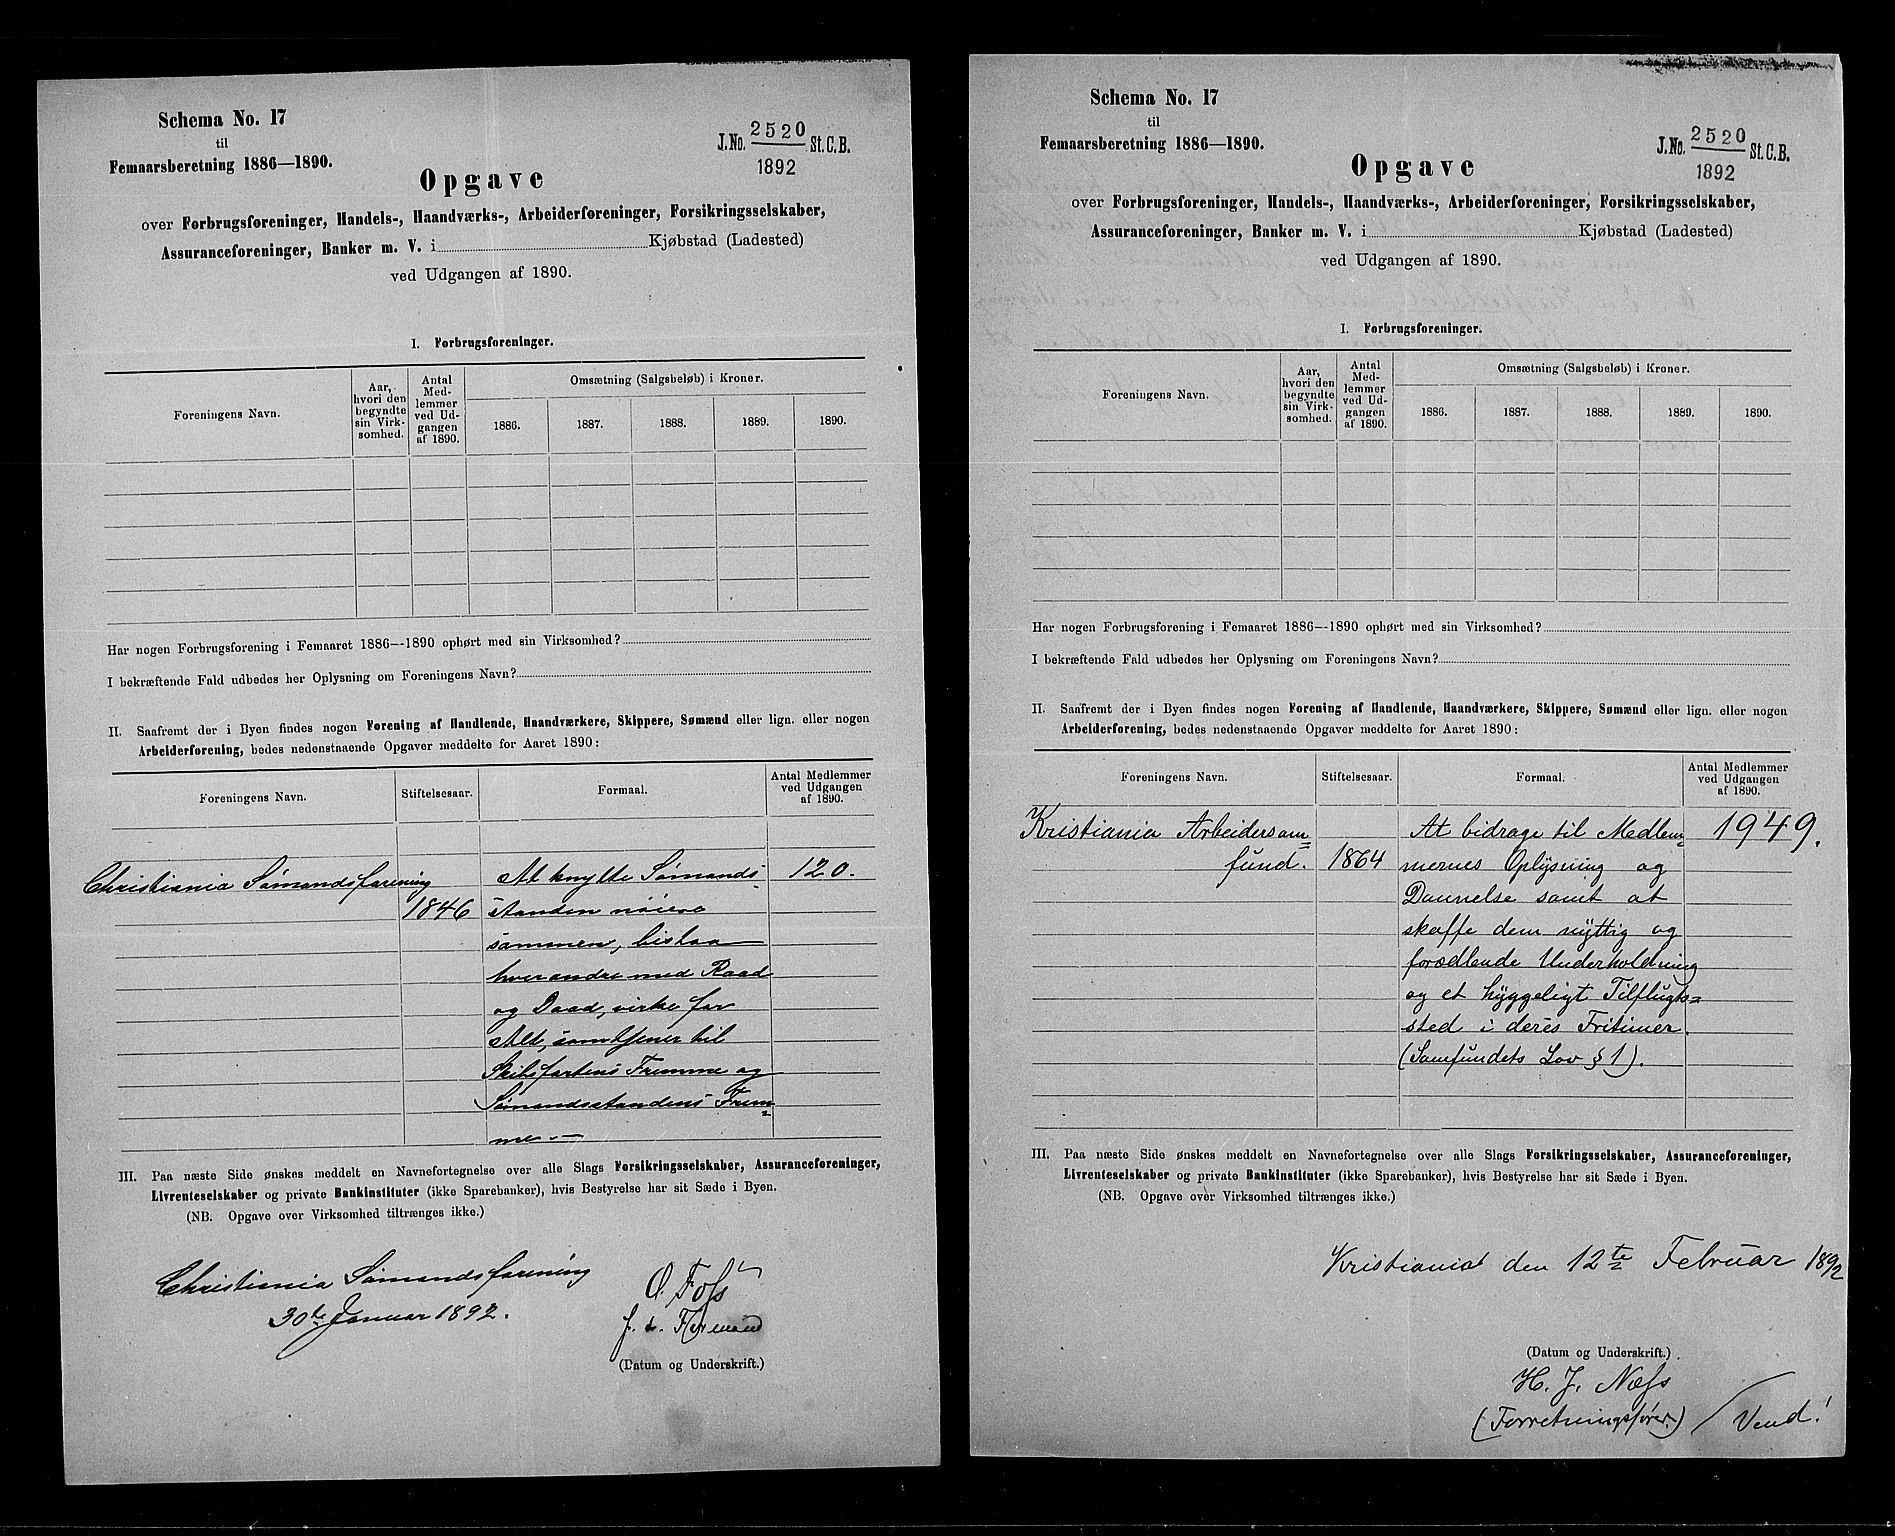 Schema No. 17
til
Femaarsberetning 1886—1890.
J.No. 2520 St.C.B.
1892
Opgave
over Forbrugsforeninger, Handels-, Haandværks-, Arbeiderforeninger, Forsikringsselskaber,
Assuranceforeninger, Banker m. V. i Kjøbstad (Ladested)
ved Udgangen af 1890.
I. Forbrugsforeninger.
Foreningens Navn.
Aar, hvori den begyndte sin Virksomhed.
Antal Medlemmer ved Udgangen af 1890.
Omsætning (Salgsbeløb) i Kroner.
1886. 1887. 1888. 1889. 1890.
Har nogen Forbrugsforening i Femaaret 1886—1890 ophørt med sin Virksomhed?
I bekræftende Fald udbedes her Oplysning om Foreningens Navn?
II. Saafremt der i Byen findes nogen Forening af Handlende, Haandværkere, Skippere, Sømænd eller lign. eller nogen
Arbeiderforening, bedes nedenstaaende Opgaver meddelte for Aaret 1890:
Foreningens Navn. Stiftelsesaar. Formaal. Antal Medlemmer
ved Udgangen
af 1890.
Christiania Sømandsforening At knytte Sømands- 120.
1846 standen nöiere
sammen, bistaa
hverandre med Raad
og Daad, virke for
Alt, som tjener til
Skibsfartens Fremme og
Sømandsstandens Frem=
me.—
III. Paa næste Side ønskes meddelt en Navnefortegnelse over alle Slags Forsikringsselskaber, Assuranceforeninger,
Livrenteselskaber og private Bankinstituter (ikke Sparebanker), hvis Bestyrelse har sit Sæde i Byen.
(NB. Opgave over Virksomhed tiltrænges ikke.)
Christiania Sömandsforening
30te Januar 1892.
O. Foss
f. t. Formand
(Datum og Underskrift.)
Schema No. 17
til
Femaarsberetning 1886—1890.
J.No. 2520 St.C.B.
1892
Opgave
over Forbrugsforeninger, Handels-, Haandværks-, Arbeiderforeninger, Forsikringsselskaber,
Assuranceforeninger, Banker m. V. i Kjøbstad (Ladested)
ved Udgangen af 1890.
I. Forbrugsforeninger.
Foreningens Navn.
Aar, hvori den begyndte sin Virksomhed.
Antal Medlemmer ved Udgangen af 1890.
Omsætning (Salgsbeløb) i Kroner.
1886. 1887. 1888. 1889. 1890.
Har nogen Forbrugsforening i Femaaret 1886—1890 ophørt med sin Virksomhed?
I bekræftende Fald udbedes her Oplysning om Foreningens Navn?
II. Saafremt der i Byen findes nogen Forening af Handlende, Haandværkere, Skippere, Sømænd eller lign. eller nogen
Arbeiderforening, bedes nedenstaaende Opgaver meddelte for Aaret 1890:
Foreningens Navn. Stiftelsesaar. Formaal. Antal Medlemmer
ved Udgangen
af 1890.
Kristiania Arbeidersam= At bidrage til Medlem= 1949.
fund. 1864 mernes Oplysning og
Dannelse samt at
skaffe dem nyttig og
forædlende Underholdning
og et hyggeligt Tilflugts=
sted i deres Fritimer
(Samfundets Lov § 1).
III. Paa næste Side ønskes meddelt en Navnefortegnelse over alle Slags Forsikringsselskaber, Assuranceforeninger,
Livrenteselskaber og private Bankinstituter (ikke Sparebanker), hvis Bestyrelse har sit Sæde i Byen.
(NB. Opgave over Virksomhed tiltrænges ikke.)
Kristiania den 12te Februar 1892
(Datum og Underskrift.)
H. J. Næss
(Forretningsfører.) Vend!